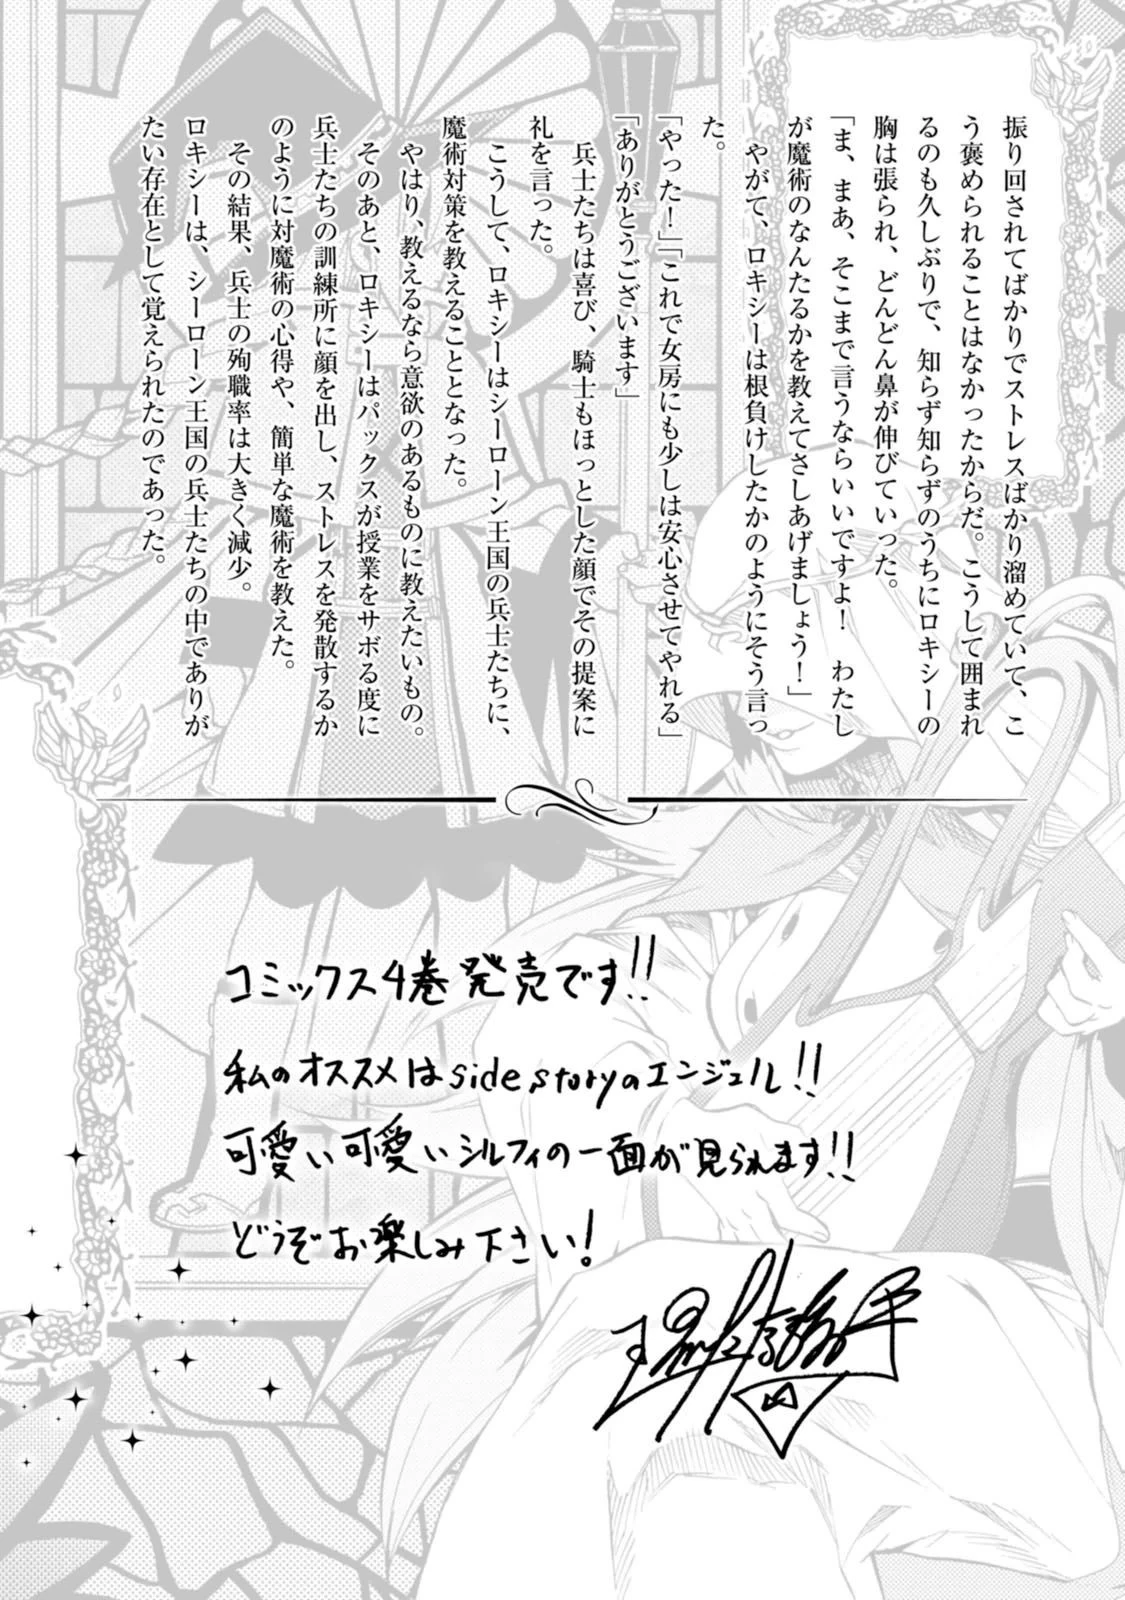 振り回されてばかりでストレスばかり溜めていて、こ
う褒められることはなかったからだ。こうして囲まれ
るのも久しぶりで、知らず知らずのうちにロキシーの
胸は張られ、どんどん鼻が伸びていった。
「ま、まあ、そこまで言うならいいですよ！　わたし
が魔術のなんたるかを教えてさしあげましょう！」
　やがて、ロキシーは根負けしたかのようにそう言っ
た。
「やった！」「これで女房にも少しは安心させてやれる」
「ありがとうございます」
　兵士たちは喜び、騎士もほっとした顔でその提案に
礼を言った。
　こうして、ロキシーはシーローン王国の兵士たちに、
魔術対策を教えることとなった。
　やはり、教えるなら意欲のあるものに教えたいもの。
　そのあと、ロキシーはパックスが授業をサボる度に
兵士たちの訓練所に顔を出し、ストレスを発散するか
のように対魔術の心得や、簡単な魔術を教えた。
　その結果、兵士の殉職率は大きく減少。
ロキシーは、シーローン王国の兵士たちの中でありが
たい存在として覚えられたのであった。
コミックス4巻発売です!!
私のオススメはside storyのエンジェル!!
可愛い可愛いシルフィの一面が見られます!!
どうぞお楽しみ下さい!